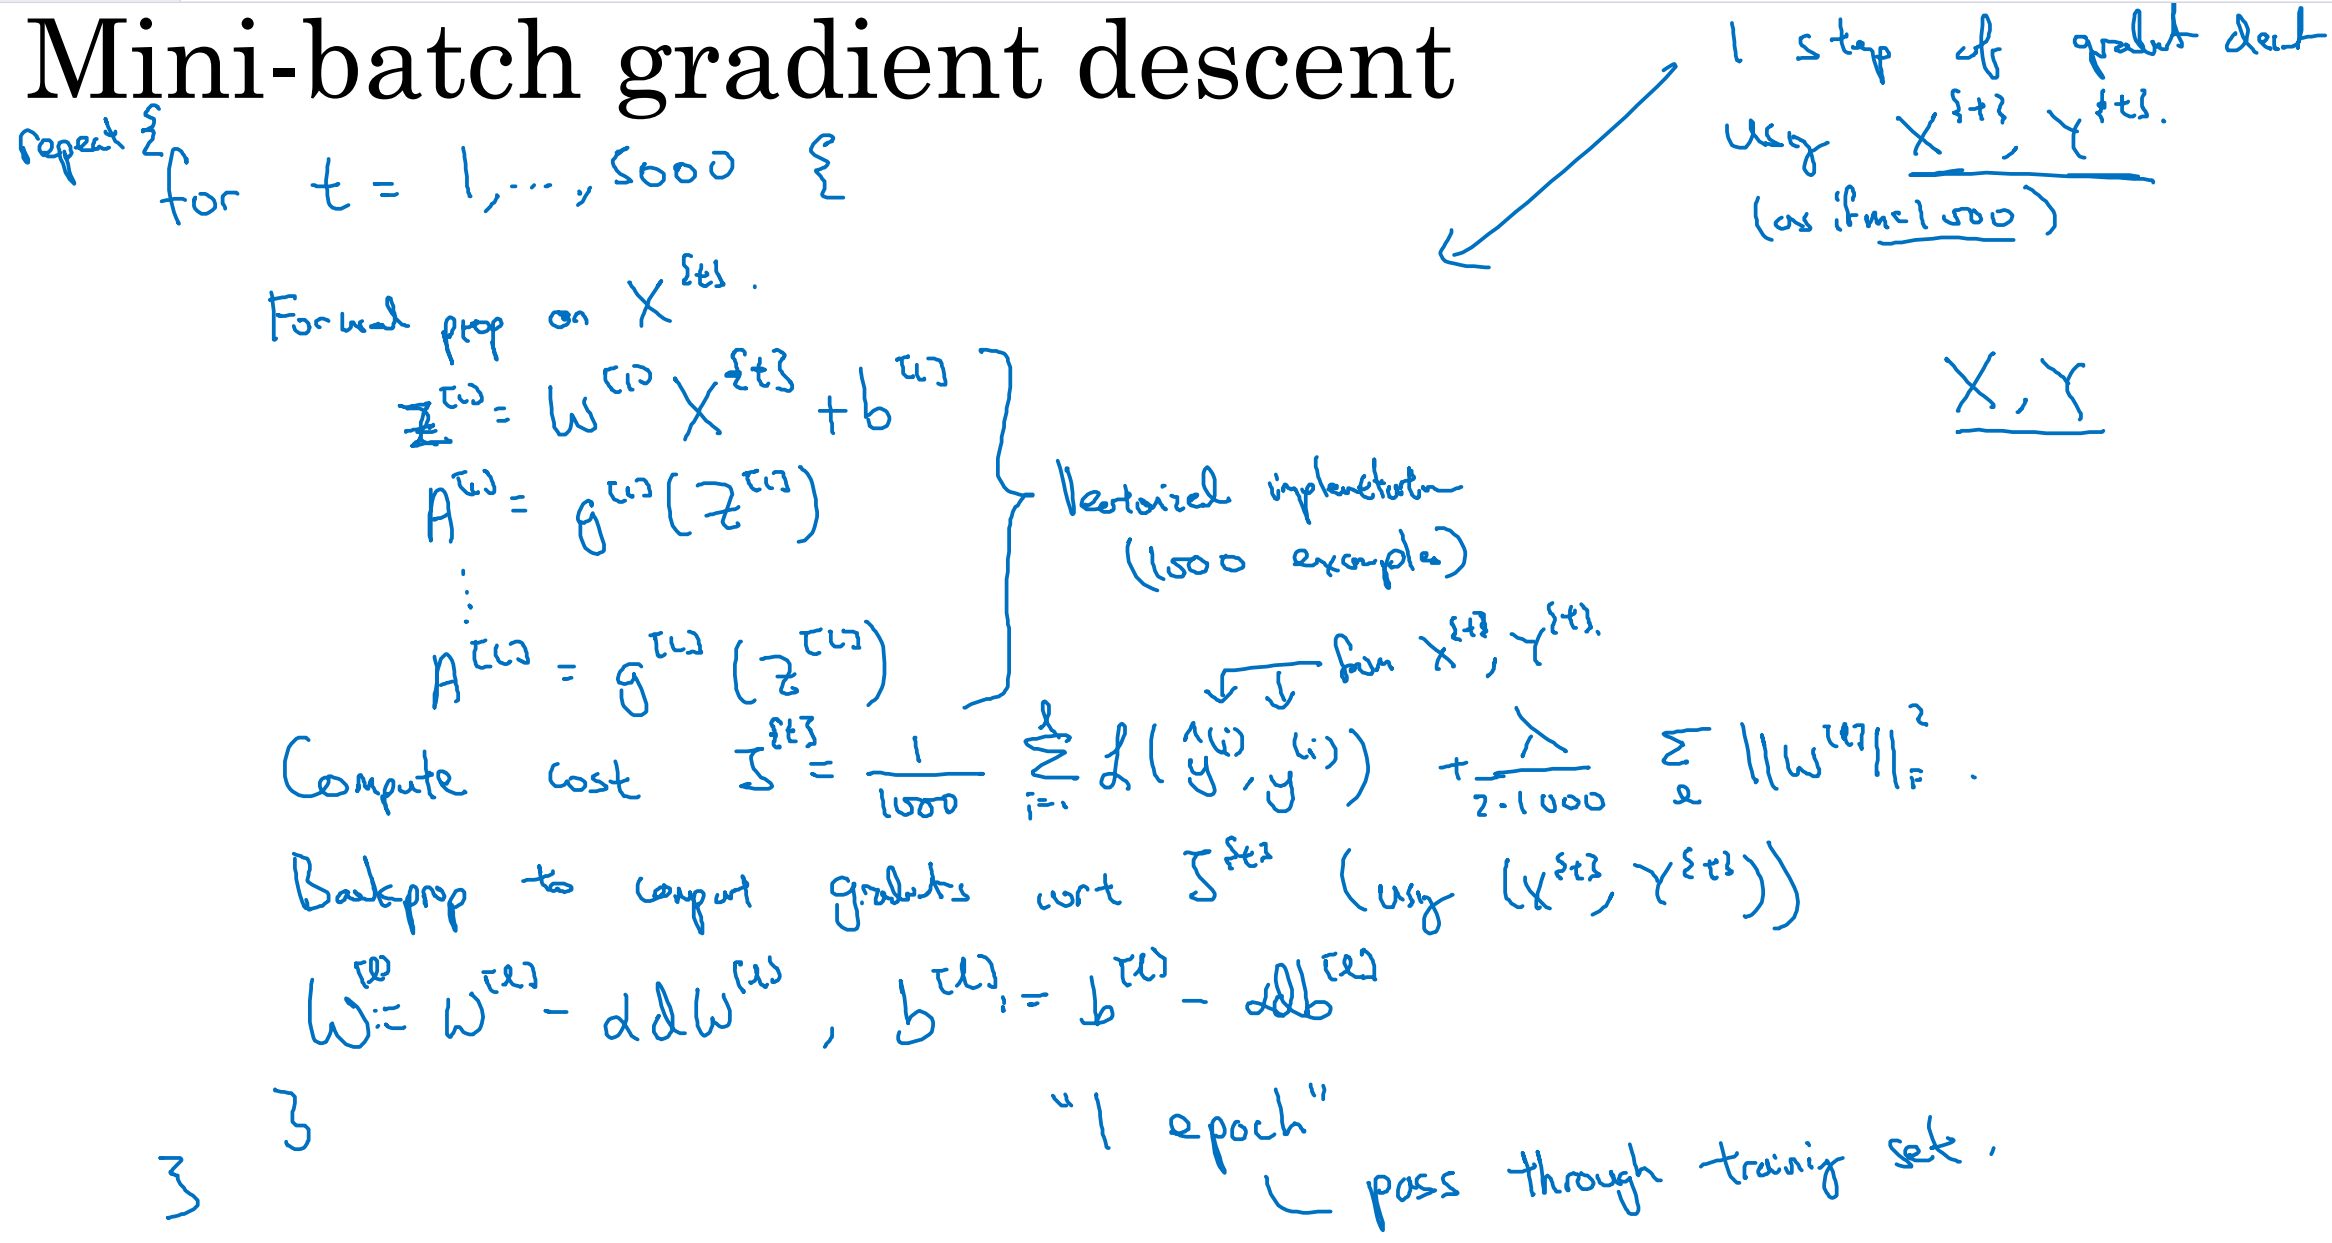 Mini-batch gradient descent
1 step of gradient descent
using X^{t}, Y^{t}.
(as if m=1000)
repeat {
for t = 1,..., 5000 {
Forward prop on X^{t}.
Z^[1] = W^[1] X^{t} + b^[1]
A^[1] = g^[1](Z^[1])
⋮
A^[L] = g^[L](Z^[L])
Vectorized implementation
(1000 examples)
X, Y
from X^{t}, Y^{t}.
Compute cost J^{t} = 1/1000 Σ_{i=1}^{l} L(ŷ^(i), y^(i)) + λ/(2·1000) Σ_l ||W^[l]||_F^2.
Backprop to compute gradients wrt J^{t} (using (X^{t}, Y^{t}))
W^[l] := W^[l] - αdW^[l], b^[l] := b^[l] - αdb^[l]
}
}
"1 epoch"
pass through training set.